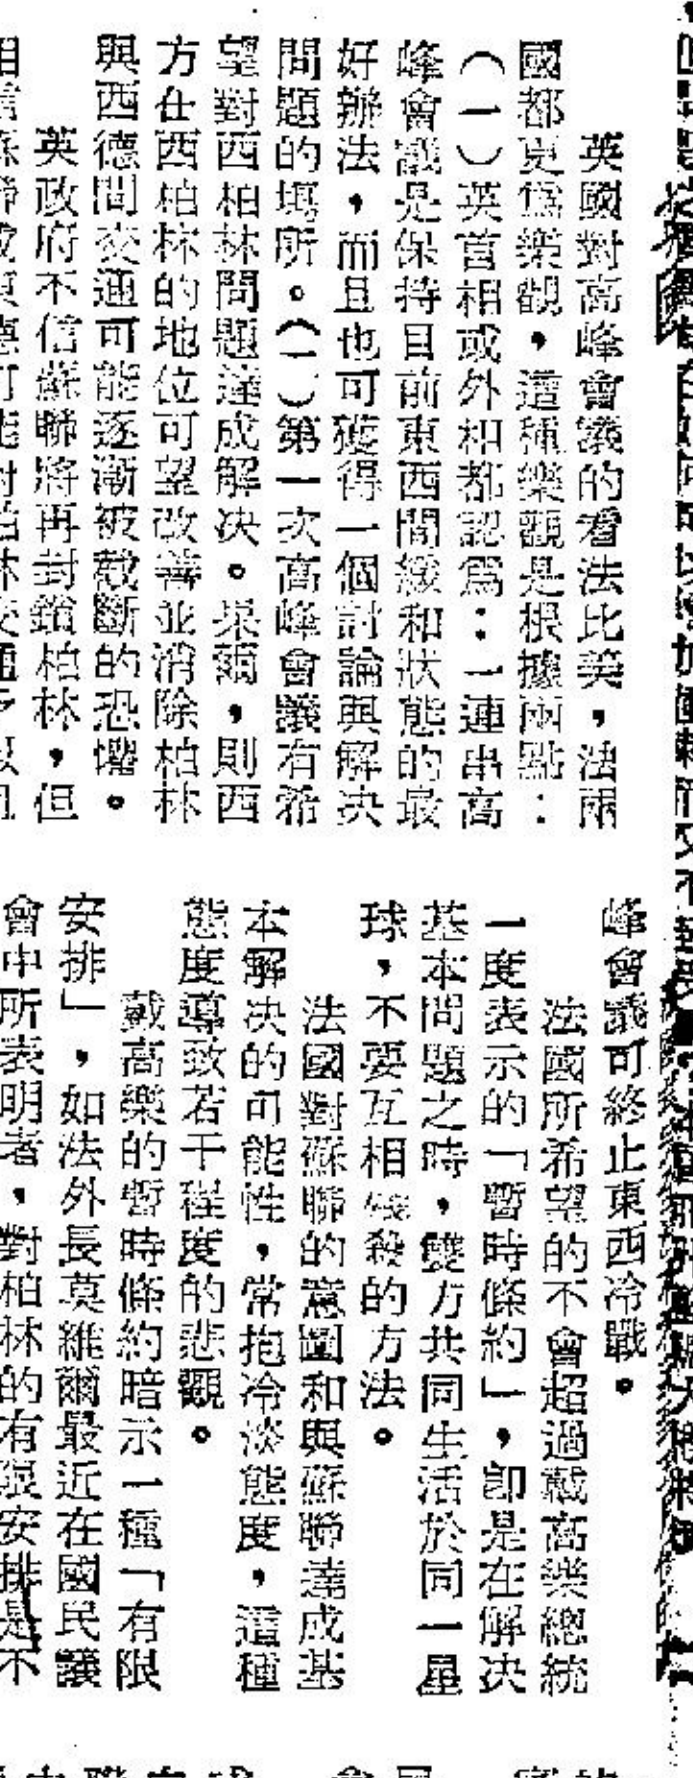 英國對高峰會議的看法比美，法兩
國都更爲樂觀，這種樂觀是根據兩點：
（一）英首相或外相都認爲：一連串高
峰會議是保持目前東西間緩和狀態的最
好辦法，而且也可獲得一個討論與解决
問題的場所。（二）第一次高峰會議有希
望對西柏林問題達成解决。果爾，則西
方在西柏林的地位可望改善並消除柏林
與西德間交通可能逐漸被截斷的恐懼。
英政府不信蘇聯將再封鎖柏林，但
峰會議可終止東西冷戰。
法國所希望的不會超過戴高樂總統
一度表示的「暫時條約」，卽是在解决
基本問題之時，雙方共同生活於同一星
球，不要互相殘殺的方法。
法國對蘇聯的意圖和與蘇聯達成基
本解决的可能性，常抱冷淡態度，這種
態度導致若干程度的悲觀。
戴高樂的暫時條約暗示一種「有限
安排」，如法外長莫維爾最近在國民議
會中所表明者，對柏林的有限安排是不